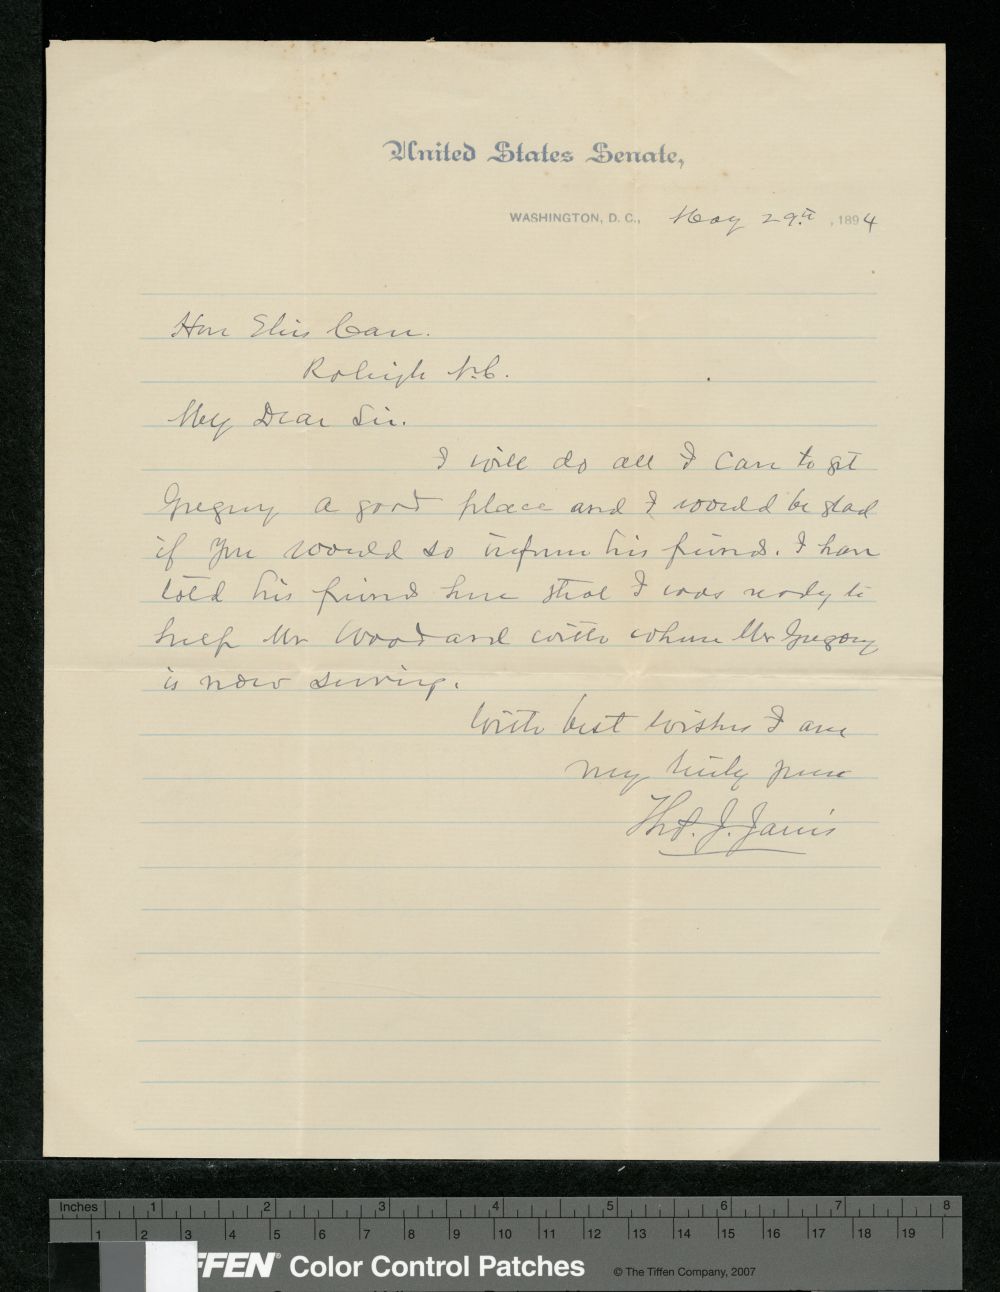 United States Senate,
WASHINGTON, D. C., May 29th, 1894
Hon Elias Carr.
Raleigh N.C.
My Dear Sir.
I will do all I can to get
Gregory a good place and I would be glad
if you would so inform his friends. I have
told his friends here that I was ready to
help Mr Woodard with whom Mr Gregory
is now serving.
With best wishes I am
very truly yours
Tho. J. Jarvis
Inches 1 2 3 4 5 6 7 8
1 2 3 4 5 6 7 8 9 10 11 12 13 14 15 16 17 18 19
FFEN® Color Control Patches © The Tiffen Company, 2007